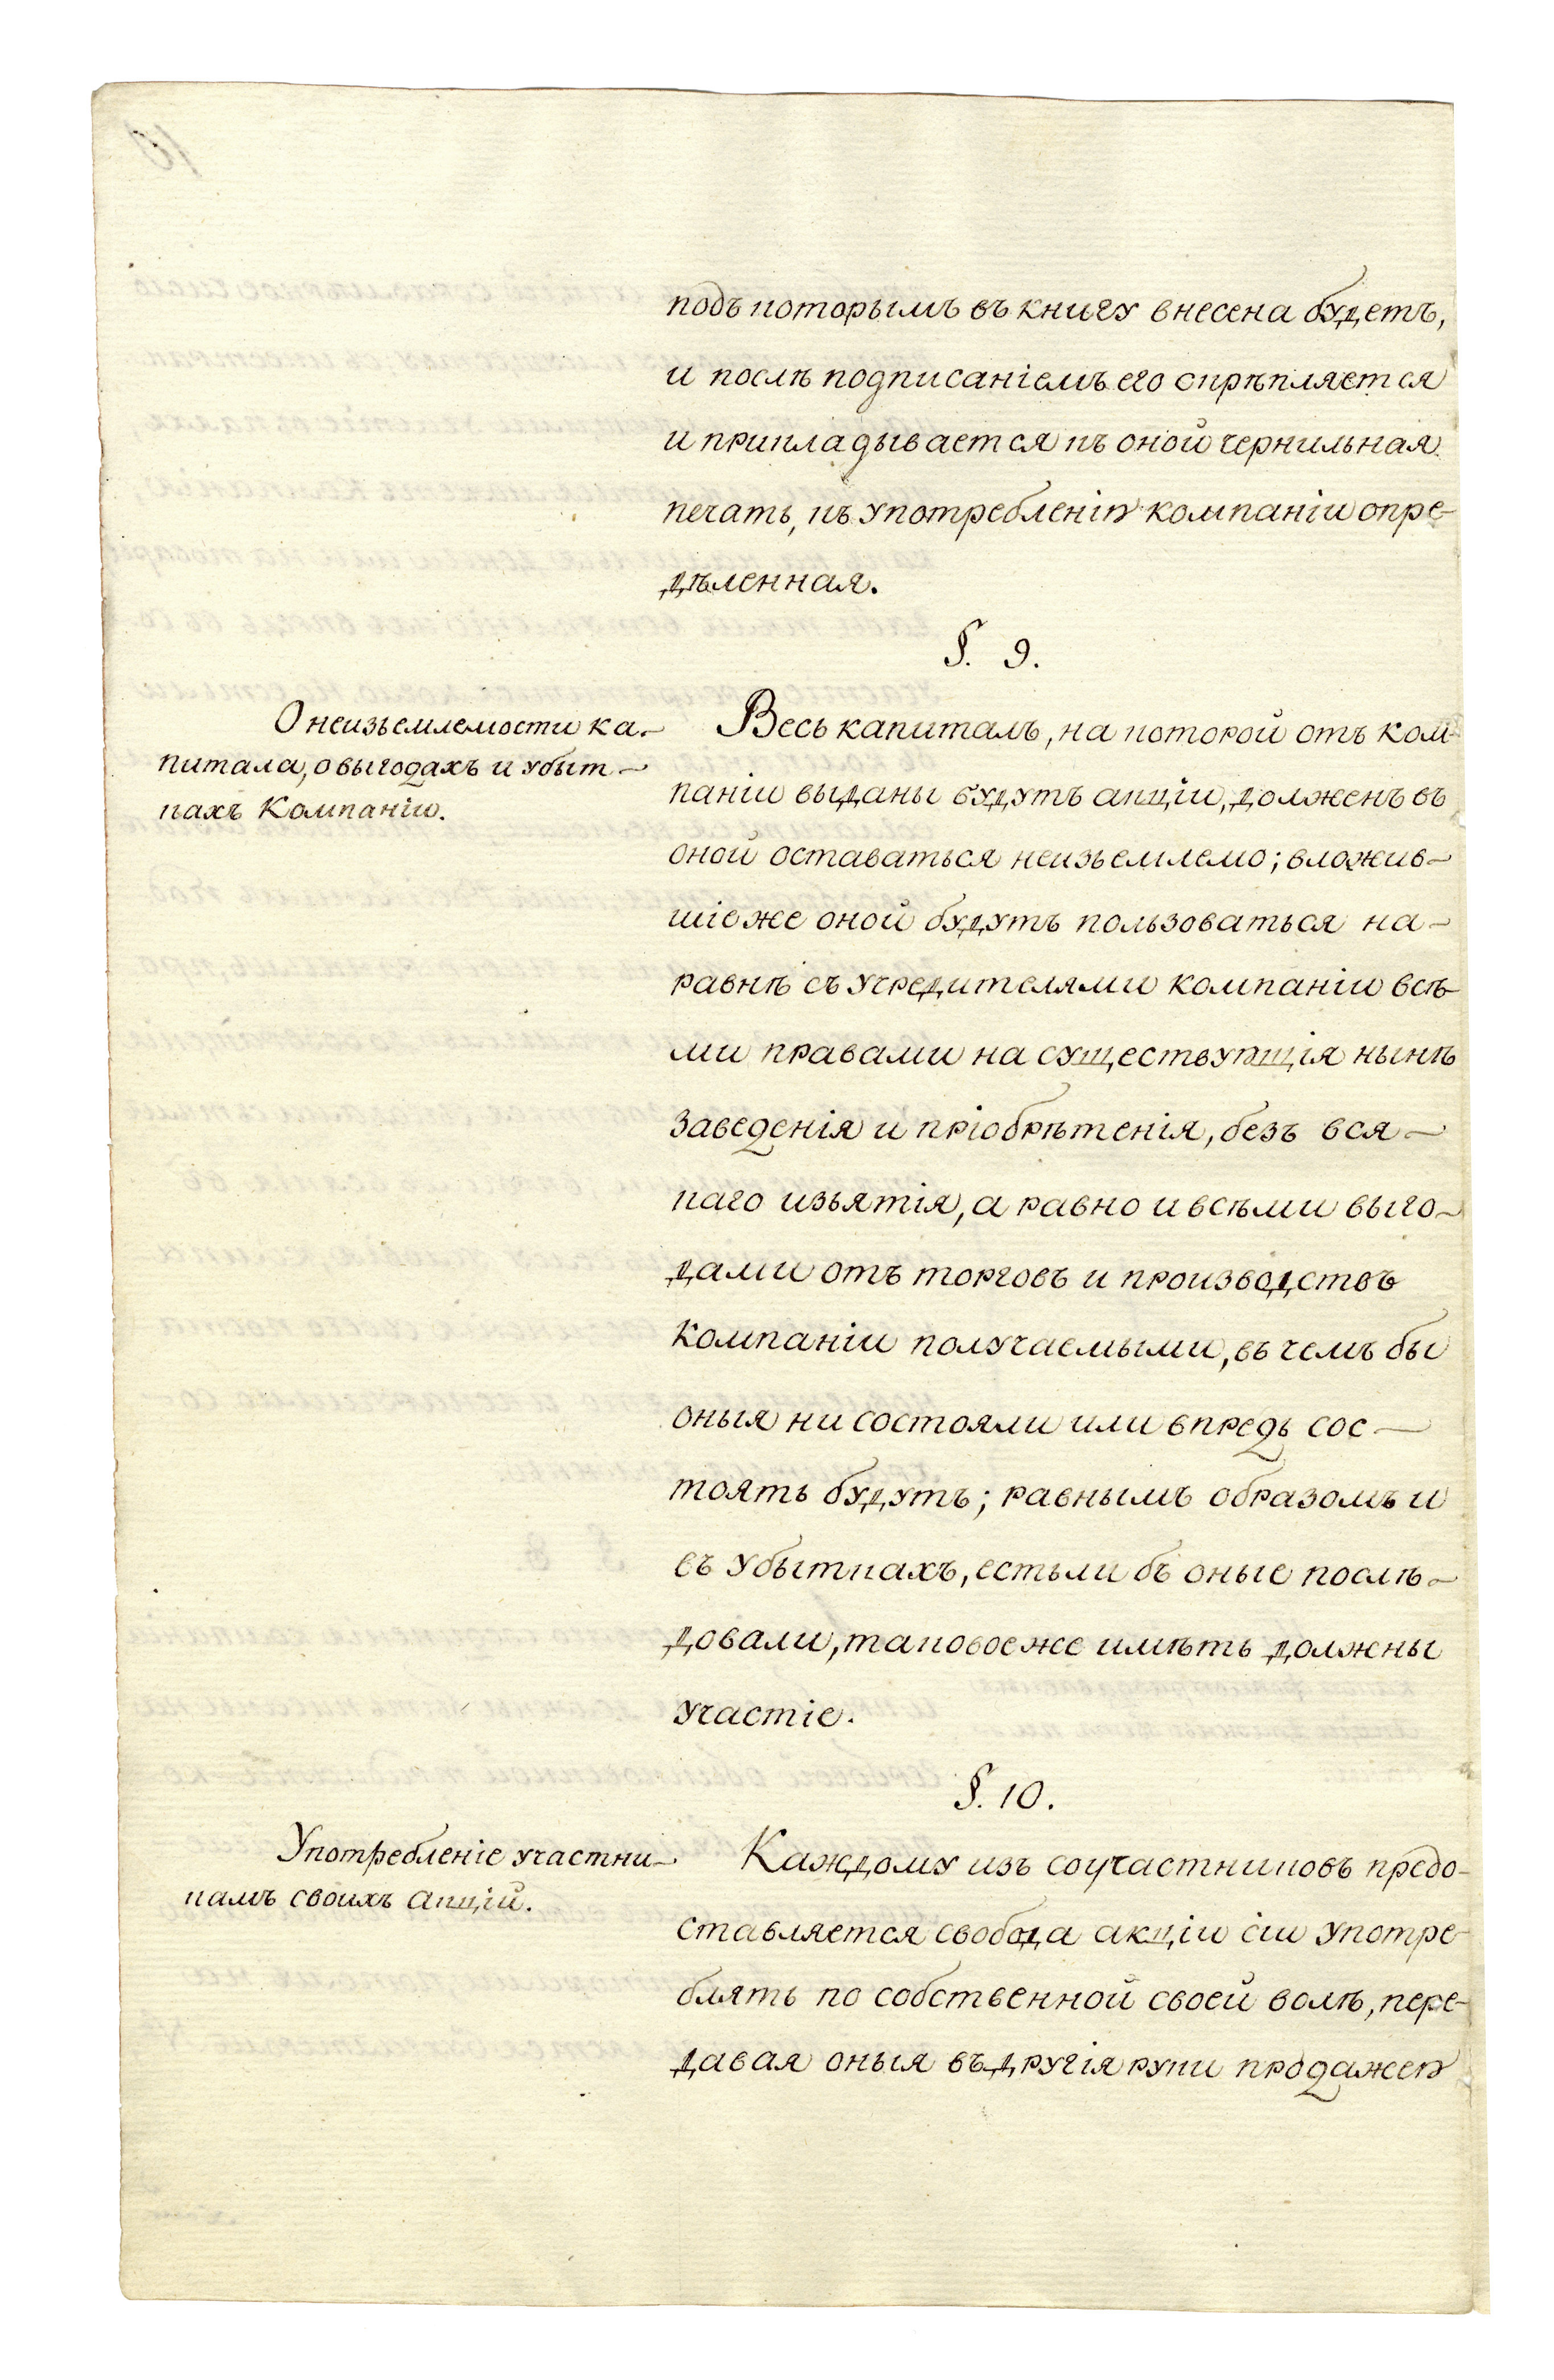 подъ которымъ въ книгу внесена будетъ,
и послѣ подписаніемъ его скрѣпляется
и прикладывается къ оной чернильная
печать, къ употребленію компаніи опре-
дѣленная.
§. 9.
О неизъемлемости ка-
питала, о выгодахъ и убыт-
кахъ Компаніи.
Весь капиталъ, на которой отъ ком-
паніи выданы будутъ акціи, долженъ въ
оной оставаться неизъемлемо; вложив-
шіе же оной будутъ пользоваться на-
равнѣ съ учредителями компаніи всѣ-
ми правами на существующія нынѣ
заведенія и пріобрѣтенія, безъ вся-
каго изъятія, а равно и всѣми выго-
дами отъ торговъ и производствъ
Компаніи получаемыми, въ чемъ бы
оныя ни состояли или впредь сос-
тоять будутъ; равнымъ образомъ и
въ убыткахъ, естьли бъ оные послѣ-
довали, таковое же имѣть должны
участіе.
§. 10.
Употребленіе участни-
камъ своихъ акцій.
Каждому изъ соучастниковъ предо-
ставляется свобода акціи сіи употре-
блять по собственной своей волѣ, пере-
давая оныя въ другія руки продажею